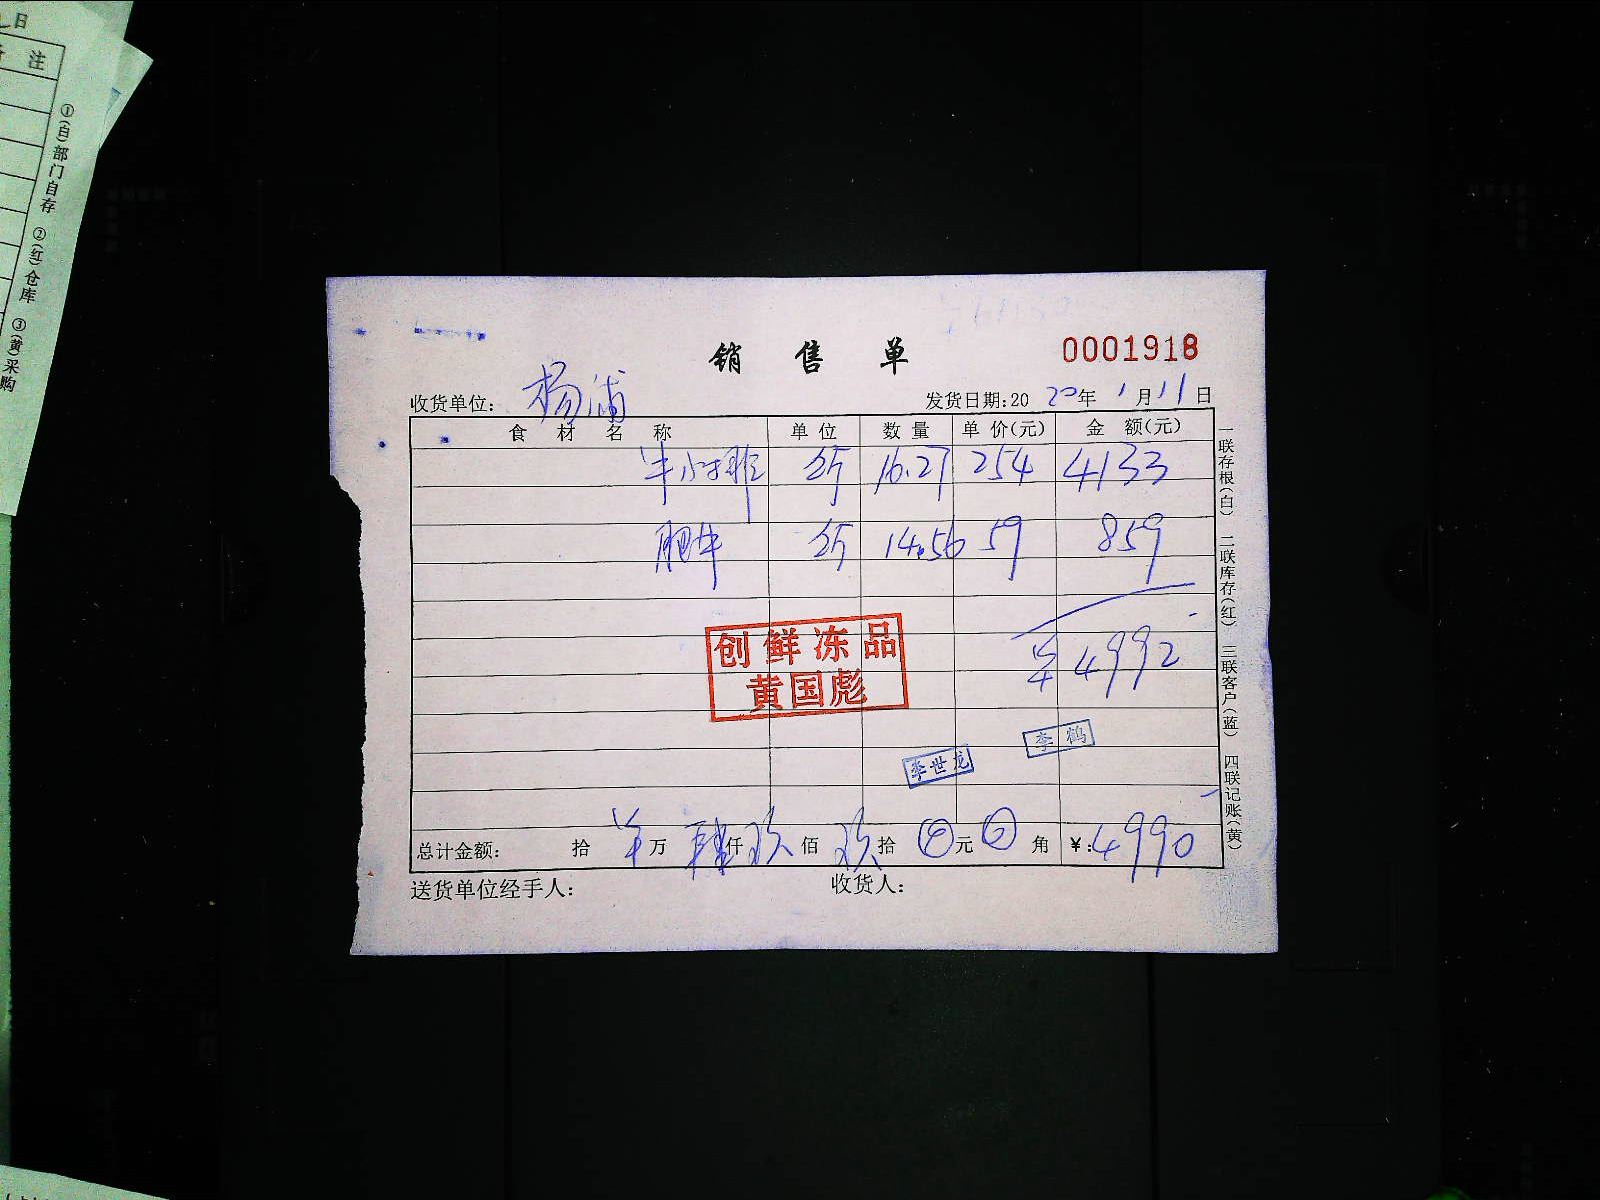 日
注
①(白)部门自存 ②(红)仓库 ③(黄)采购
销售单 0001918
收货单位: 杨浦 发货日期:2020年1月11日
食材名称 单位 数量 单价(元) 金额(元)
牛小排 斤 16.27 254 4133
肥牛 斤 14.56 59 859
¥4992
创鲜冻品
黄国彪
李鹤
李世龙
总计金额: 拾 ¥万 肆仟 玖佰 玖拾 元 角 ¥:4990
送货单位经手人: 收货人:
一联存根(白) 二联库存(红) 三联客户(蓝) 四联记账(黄)